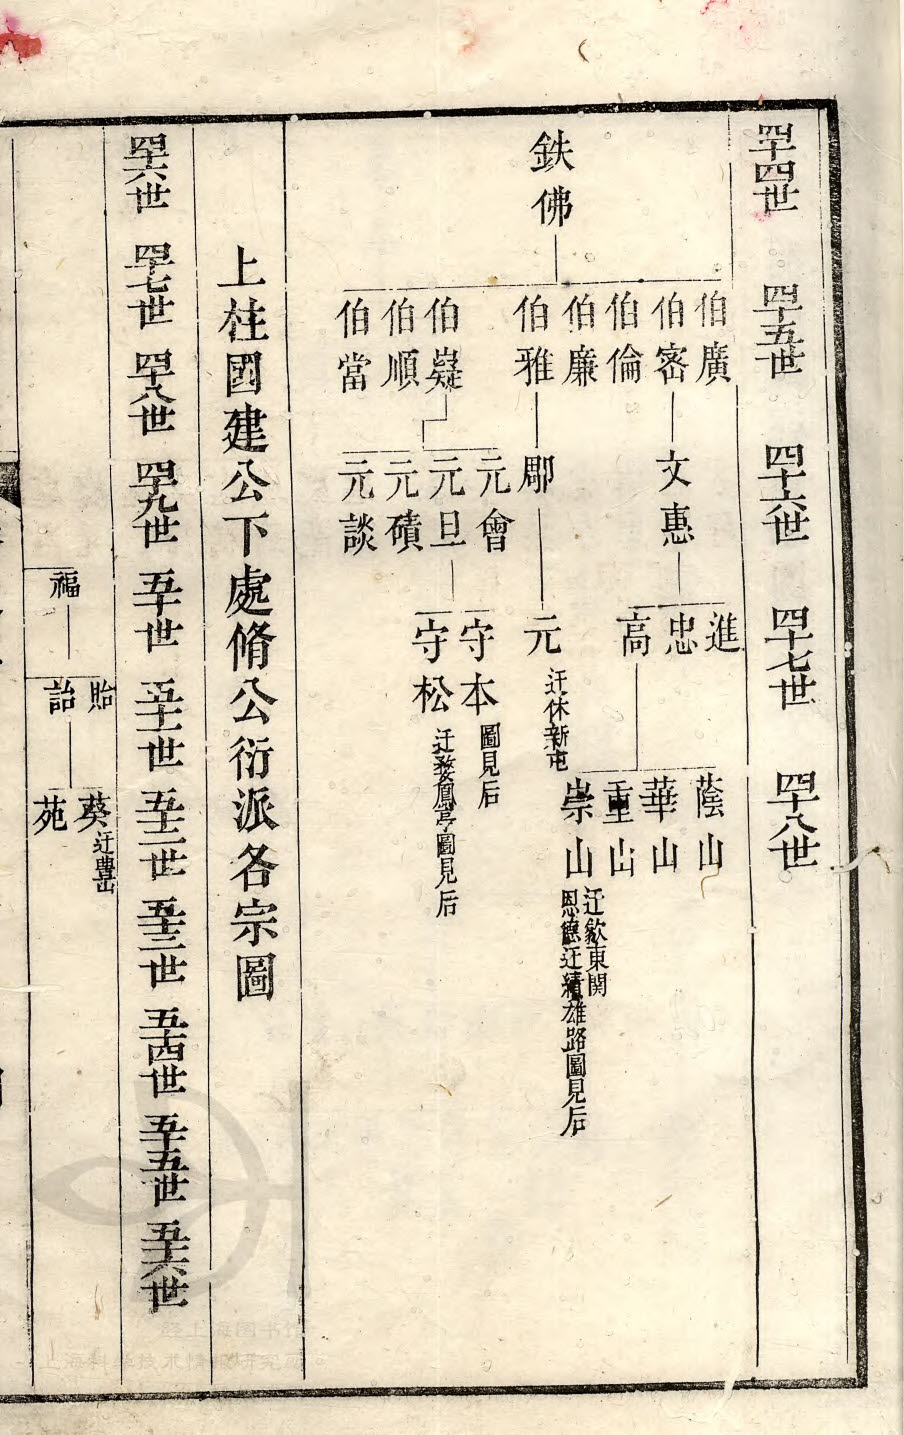 四十四世 四十五世 四十六世 四十七世 四十八世
鉄佛
伯廣 伯密 伯倫 伯廉 伯雅 伯嶷 伯順 伯當
文惠 郡 元會 元旦 元磧 元談
進 忠 高 元 迁休新屯 守本 圖見后 守松 迁婺鳳亭圖見后
蔭山 華山 重山 崇山 迁歙東関 恩德迁績雄路圖見后
上柱國建公下處脩公衍派各宗圖
四十六世 四十七世 四十八世 四十九世 五十世 五十一世 五十二世 五十三世 五十四世 五十五世 五十六世
福
貽 詒
葵 迁豊岳 苑
上海图书馆
上海科学技术情报研究所